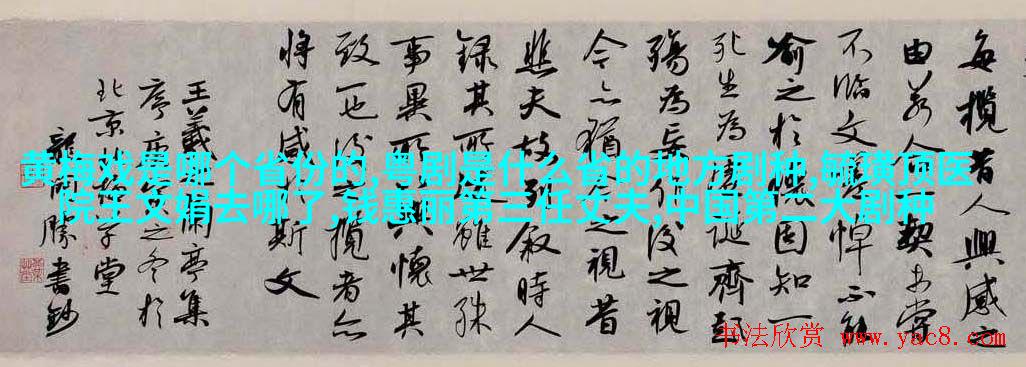 黄梅戏是哪个省份的,粤剧是什么省的地方剧种,毓璜顶医
院王文娟去哪了,钱惠丽第三任丈夫,中国第二大剧种
每攬昔人興感之
由若合一契未嘗
不臨文嗟悼不能
喻之於懷固知一
死生為虛誕齊彭
殤為妄作後之視
今亦猶今之視昔
悲夫故列敘時人
錄其所述雖世殊
事異所以興懷其
致一也後之攬者亦
將有感於斯文
王羲之蘭亭集
序之冬於
北京堂
龍開勝書鈔
书法欣赏 www.yac8.com